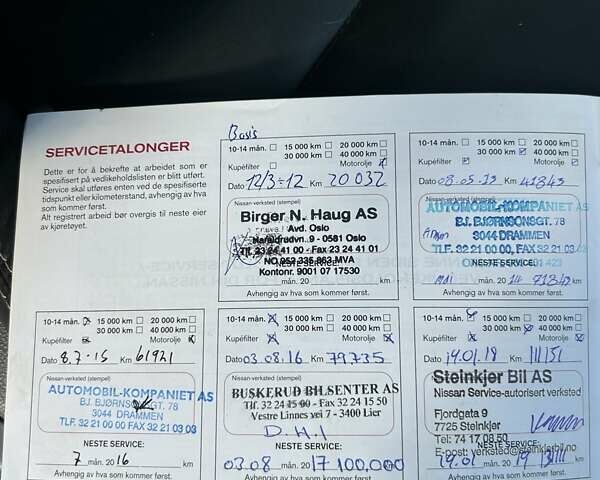 SERVICETALONGER
Dette er for å bekrefte at arbeidet som er
spesifisert på vedlikeholdslisten er blitt utført.
Service skal utføres enten ved de spesifiserte
tidspunkt eller kilometerstand, avhengig av hva
som kommer først.
Alt registrert arbeid bør overgis til neste eier
av kjøretøyet.
Basis
10-14 mån. 15 000 km 20 000 km
30 000 km 40 000 km
Kupéfilter Motorolje
Dato 12/3-12 Km 20 032
Nissan-verksted (stempel)
Birger N. Haug AS
Avd. Oslo
Nansrudvn. 9 - 0581 Oslo
Tlf. 23 24 41 00 - Fax 23 24 41 01
NO 952 335 853 MVA
Kontonr. 9001 07 17530
NESTE SERVICE:
mån. 20 km
Avhengig av hva som kommer først.
10-14 mån. 15 000 km 20 000 km
30 000 km 40 000 km
Kupéfilter Motorolje
Dato 08.05.13 Km 41845
Nissan-verksted (stempel)
AUTOMOBIL-KOMPANIET AS
B.J. BJØRNSONSGT. 78
3044 DRAMMEN
TLF. 32 21 00 00, FAX 32 21 03 03
NESTE SERVICE:
Mai mån. 20 14 71845 km
Avhengig av hva som kommer først.
10-14 mån. 15 000 km 20 000 km
30 000 km 40 000 km
Kupéfilter Motorolje
Dato 8.7.15 Km 61921
Nissan-verksted (stempel)
AUTOMOBIL-KOMPANIET AS
BJ. BJØRNSONSGT. 78
3044 DRAMMEN
TLF. 32 21 00 00, FAX 32 21 03 03
NESTE SERVICE:
7 mån. 2016 km
Avhengig av hva som kommer først.
10-14 mån. 15 000 km 20 000 km
30 000 km 40 000 km
Kupéfilter Motorolje
Dato 03.08.16 Km 79735
Nissan-verksted (stempel)
BUSKERUD BILSENTER AS
Tlf. 32 24 15 00 - Fax 32 24 15 50
Vestre Linnes vei 7 - 3400 Lier
D.H.I
NESTE SERVICE:
03.08 mån. 2017 100,000 km
Avhengig av hva som kommer først.
10-14 mån. 15 000 km 20 000 km
30 000 km 40 000 km
Kupéfilter Motorolje
Dato 19.01.18 Km 111151
Nissan-verksted (stempel)
Steinkjer Bil AS
Nissan Service-autorisert verksted
Fjordgata 9
7725 Steinkjer
Tel: 74 17 08 50
NESTE SERVICE:
E-post: verksted@steinkjerbil.no
19.01 mån. 20 19 km
Avhengig av hva som kommer først.